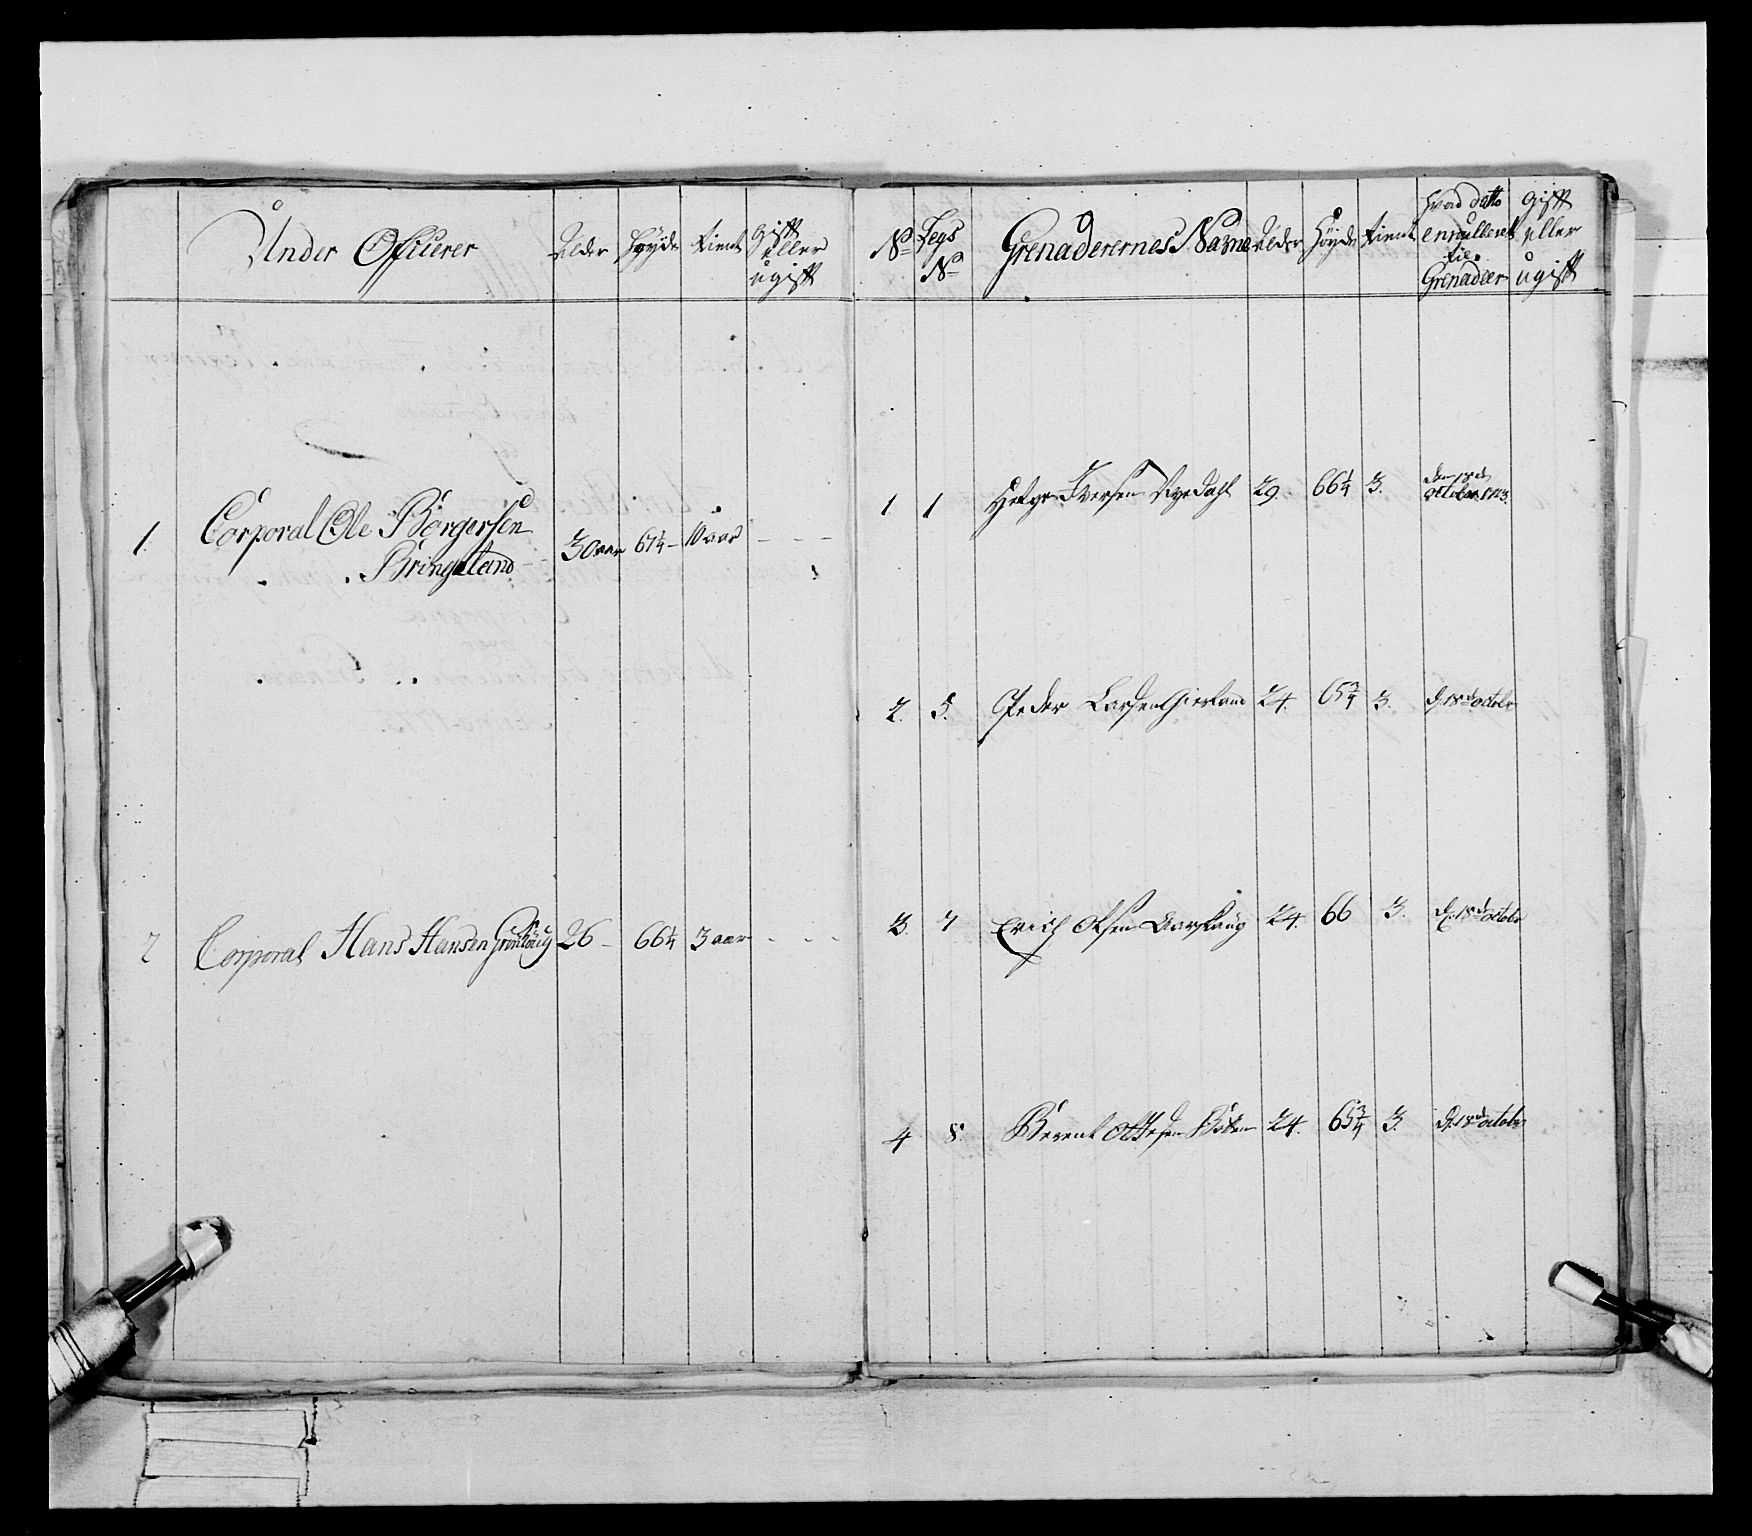 Under Officerer
Alder
Høyde
Tient
gift
eller
ugift
1. Corporal Ole Børgersen
Bringeland 30 aar 67¼ 10 aar
2 Corporal Hans Hansen 26 66¼ 3 aar
No
Legs
No
Grenaderernes Nafne
Alder
Høyde
Tient
hvad datto
enroulleret
til
Grenadeer
gift
eller
ugift
1 1 Helge Iversen 29. 66¼ 3. den 18de
october 1773.
2. 5. Peder Larsen 24. 65¾ 3. d. 18de octobr
3. 7 Erich Olsen 24. 66 3. d. 18de octobr
4 8 Berent Ottesen 24. 65¾ 3. d. 18de octobr